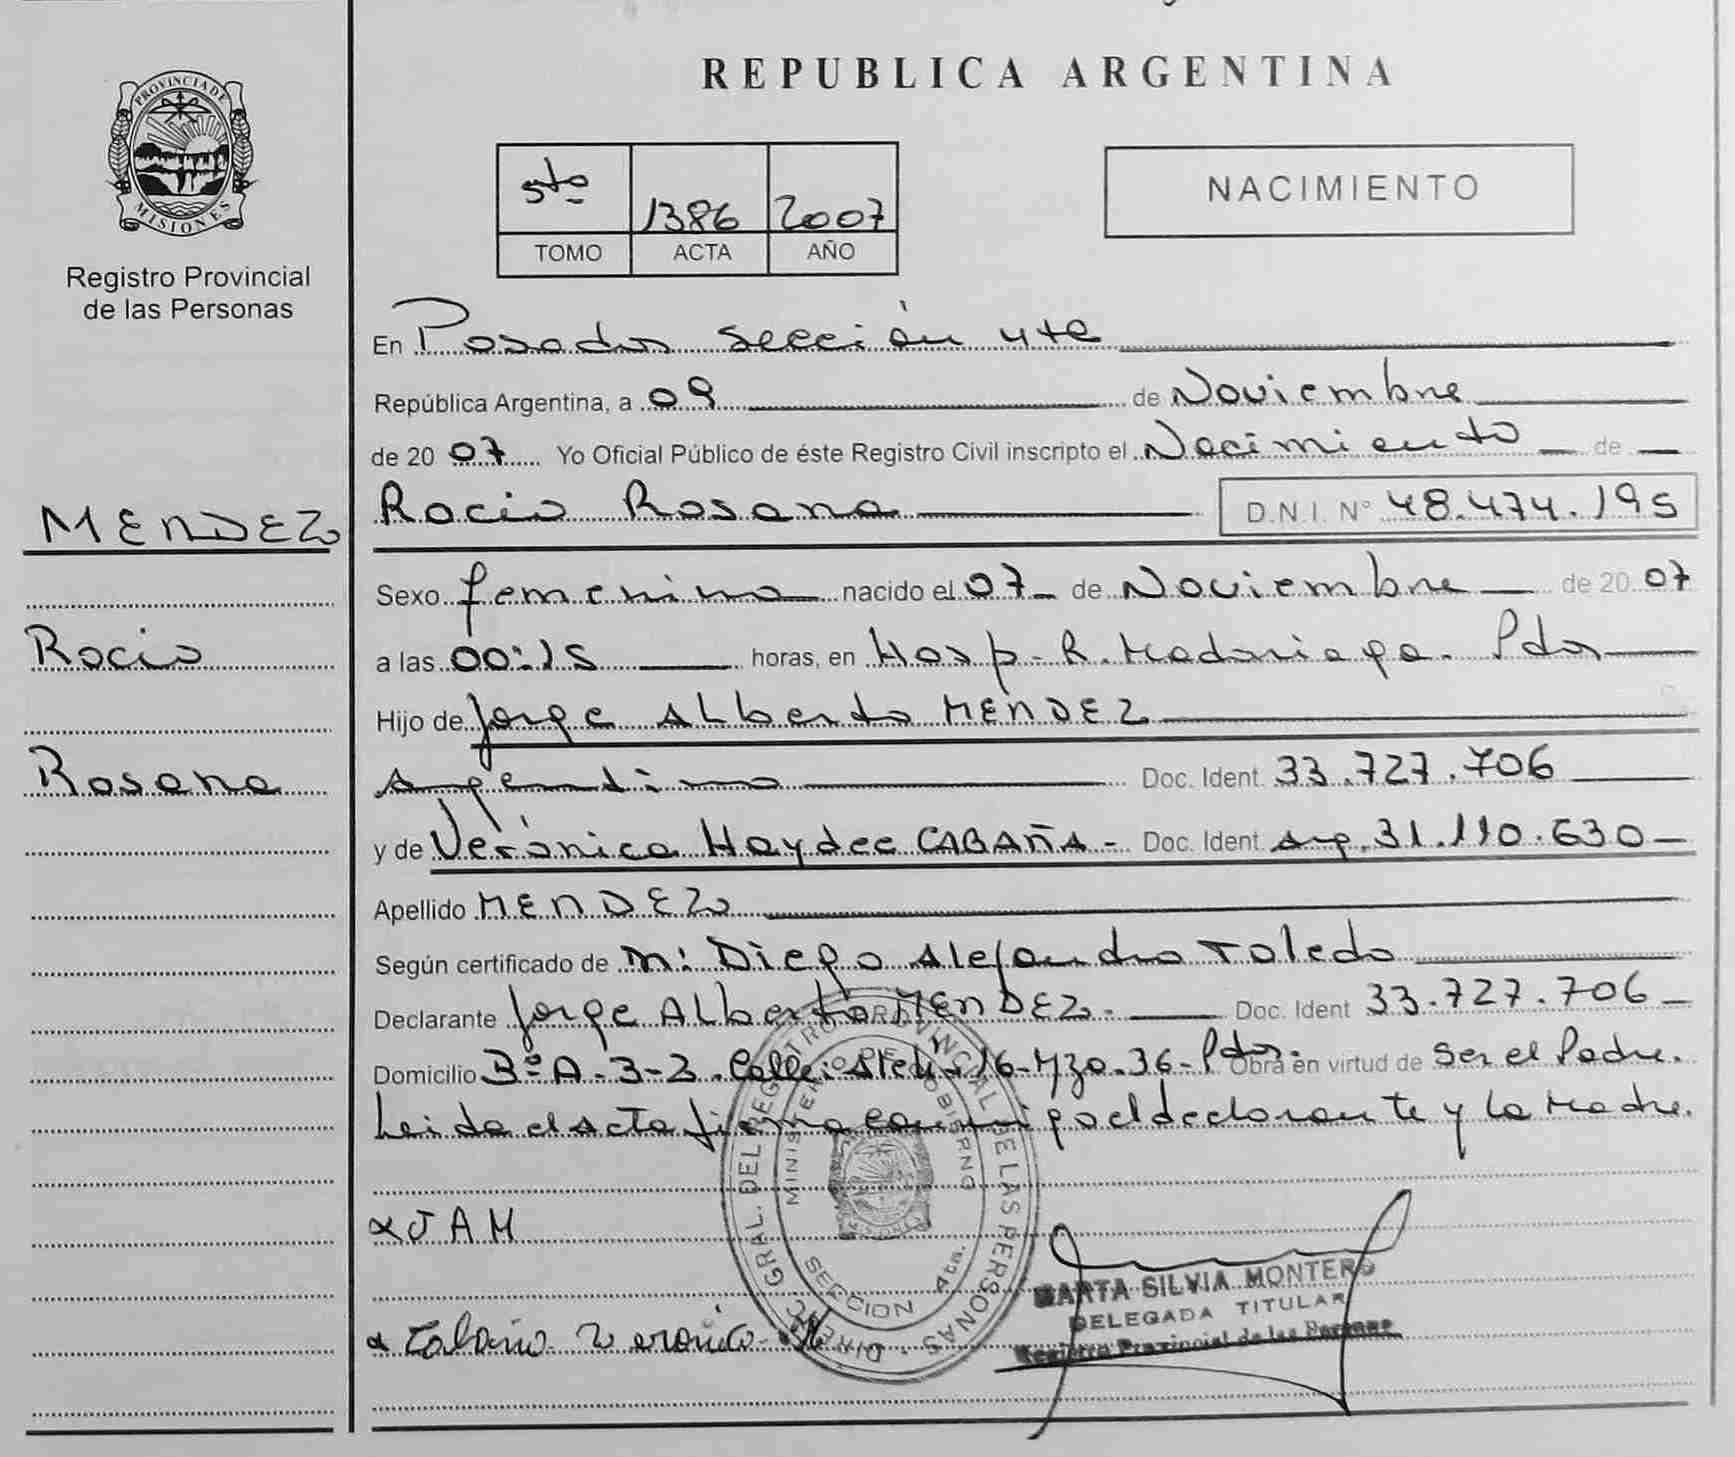 REPUBLICA ARGENTINA
PROVINCIA DE
MISIONES
Registro Provincial
de las Personas
5to 1386 2007
TOMO ACTA AÑO
NACIMIENTO
En Posadas sección 4ta
República Argentina, a 09 de Noviembre
de 2007 Yo Oficial Público de éste Registro Civil inscripto el Nacimiento de
MENDEZ
Rocio Rosana D.N.I. Nº 48.474.195
Sexo femenino nacido el 07 de Noviembre de 2007
Rocio
a las 00:15 horas, en Hosp. R. Madariaga. Pdas
Hijo de Jorge Alberto MENDEZ
Rosana
argentino Doc. Ident. 33.727.706
y de Verónica Haydee CABAÑA - Doc. Ident. arg. 31.110.630
Apellido MENDEZ
Según certificado de M: Diego Alejandro Toledo
Declarante Jorge Alberto MENDEZ. Doc. Ident 33.727.706
Domicilio 16-Mza.36-Pdas. Obra en virtud de ser el Padre.
Leida el acta firma conmigo el declarante y la Madre.
x JAM
x Cabaña Veronica
DIREC GRAL. DEL REGISTRO PROVINCIAL DE LAS PERSONAS
MINISTERIO DE GOBIERNO
SECCION 4ta.
MARTA SILVIA MONTERO
DELEGADA TITULAR
Registro Provincial de las Personas